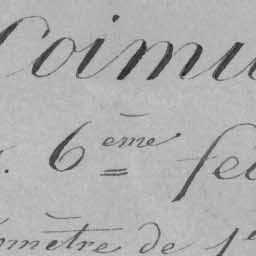 Coimu
. 6ème feu
mètre de 1